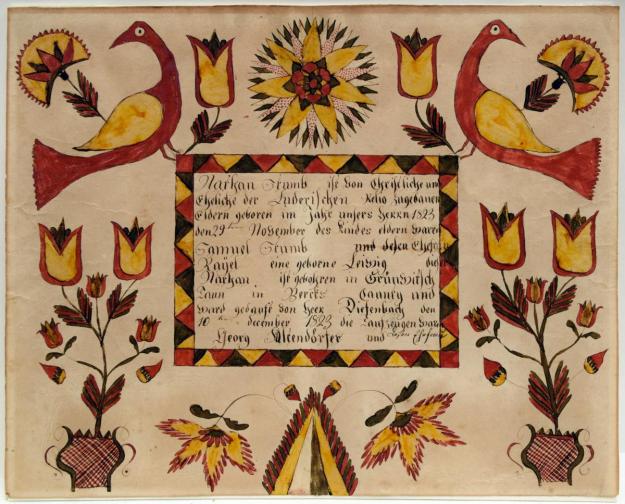 Narkan Stumb ist Von Christliche und
Eheliche der Luderischen Relio zugedanen
Eldern geboren im Jahr unsers Herrn 1823
den 29ten November des kindes eldern waren
Samuel Stumb und desen Ehefrau
Raÿel eine geborne Leisig diser
Narkan ist gebohren in Grünwitsch
Taun in Bercks Caunty und
ward gedauft von Herr Diefenbach den
10ten december 1823 die Taufzeugen waren
Georg Altendörfer und Ehefrau